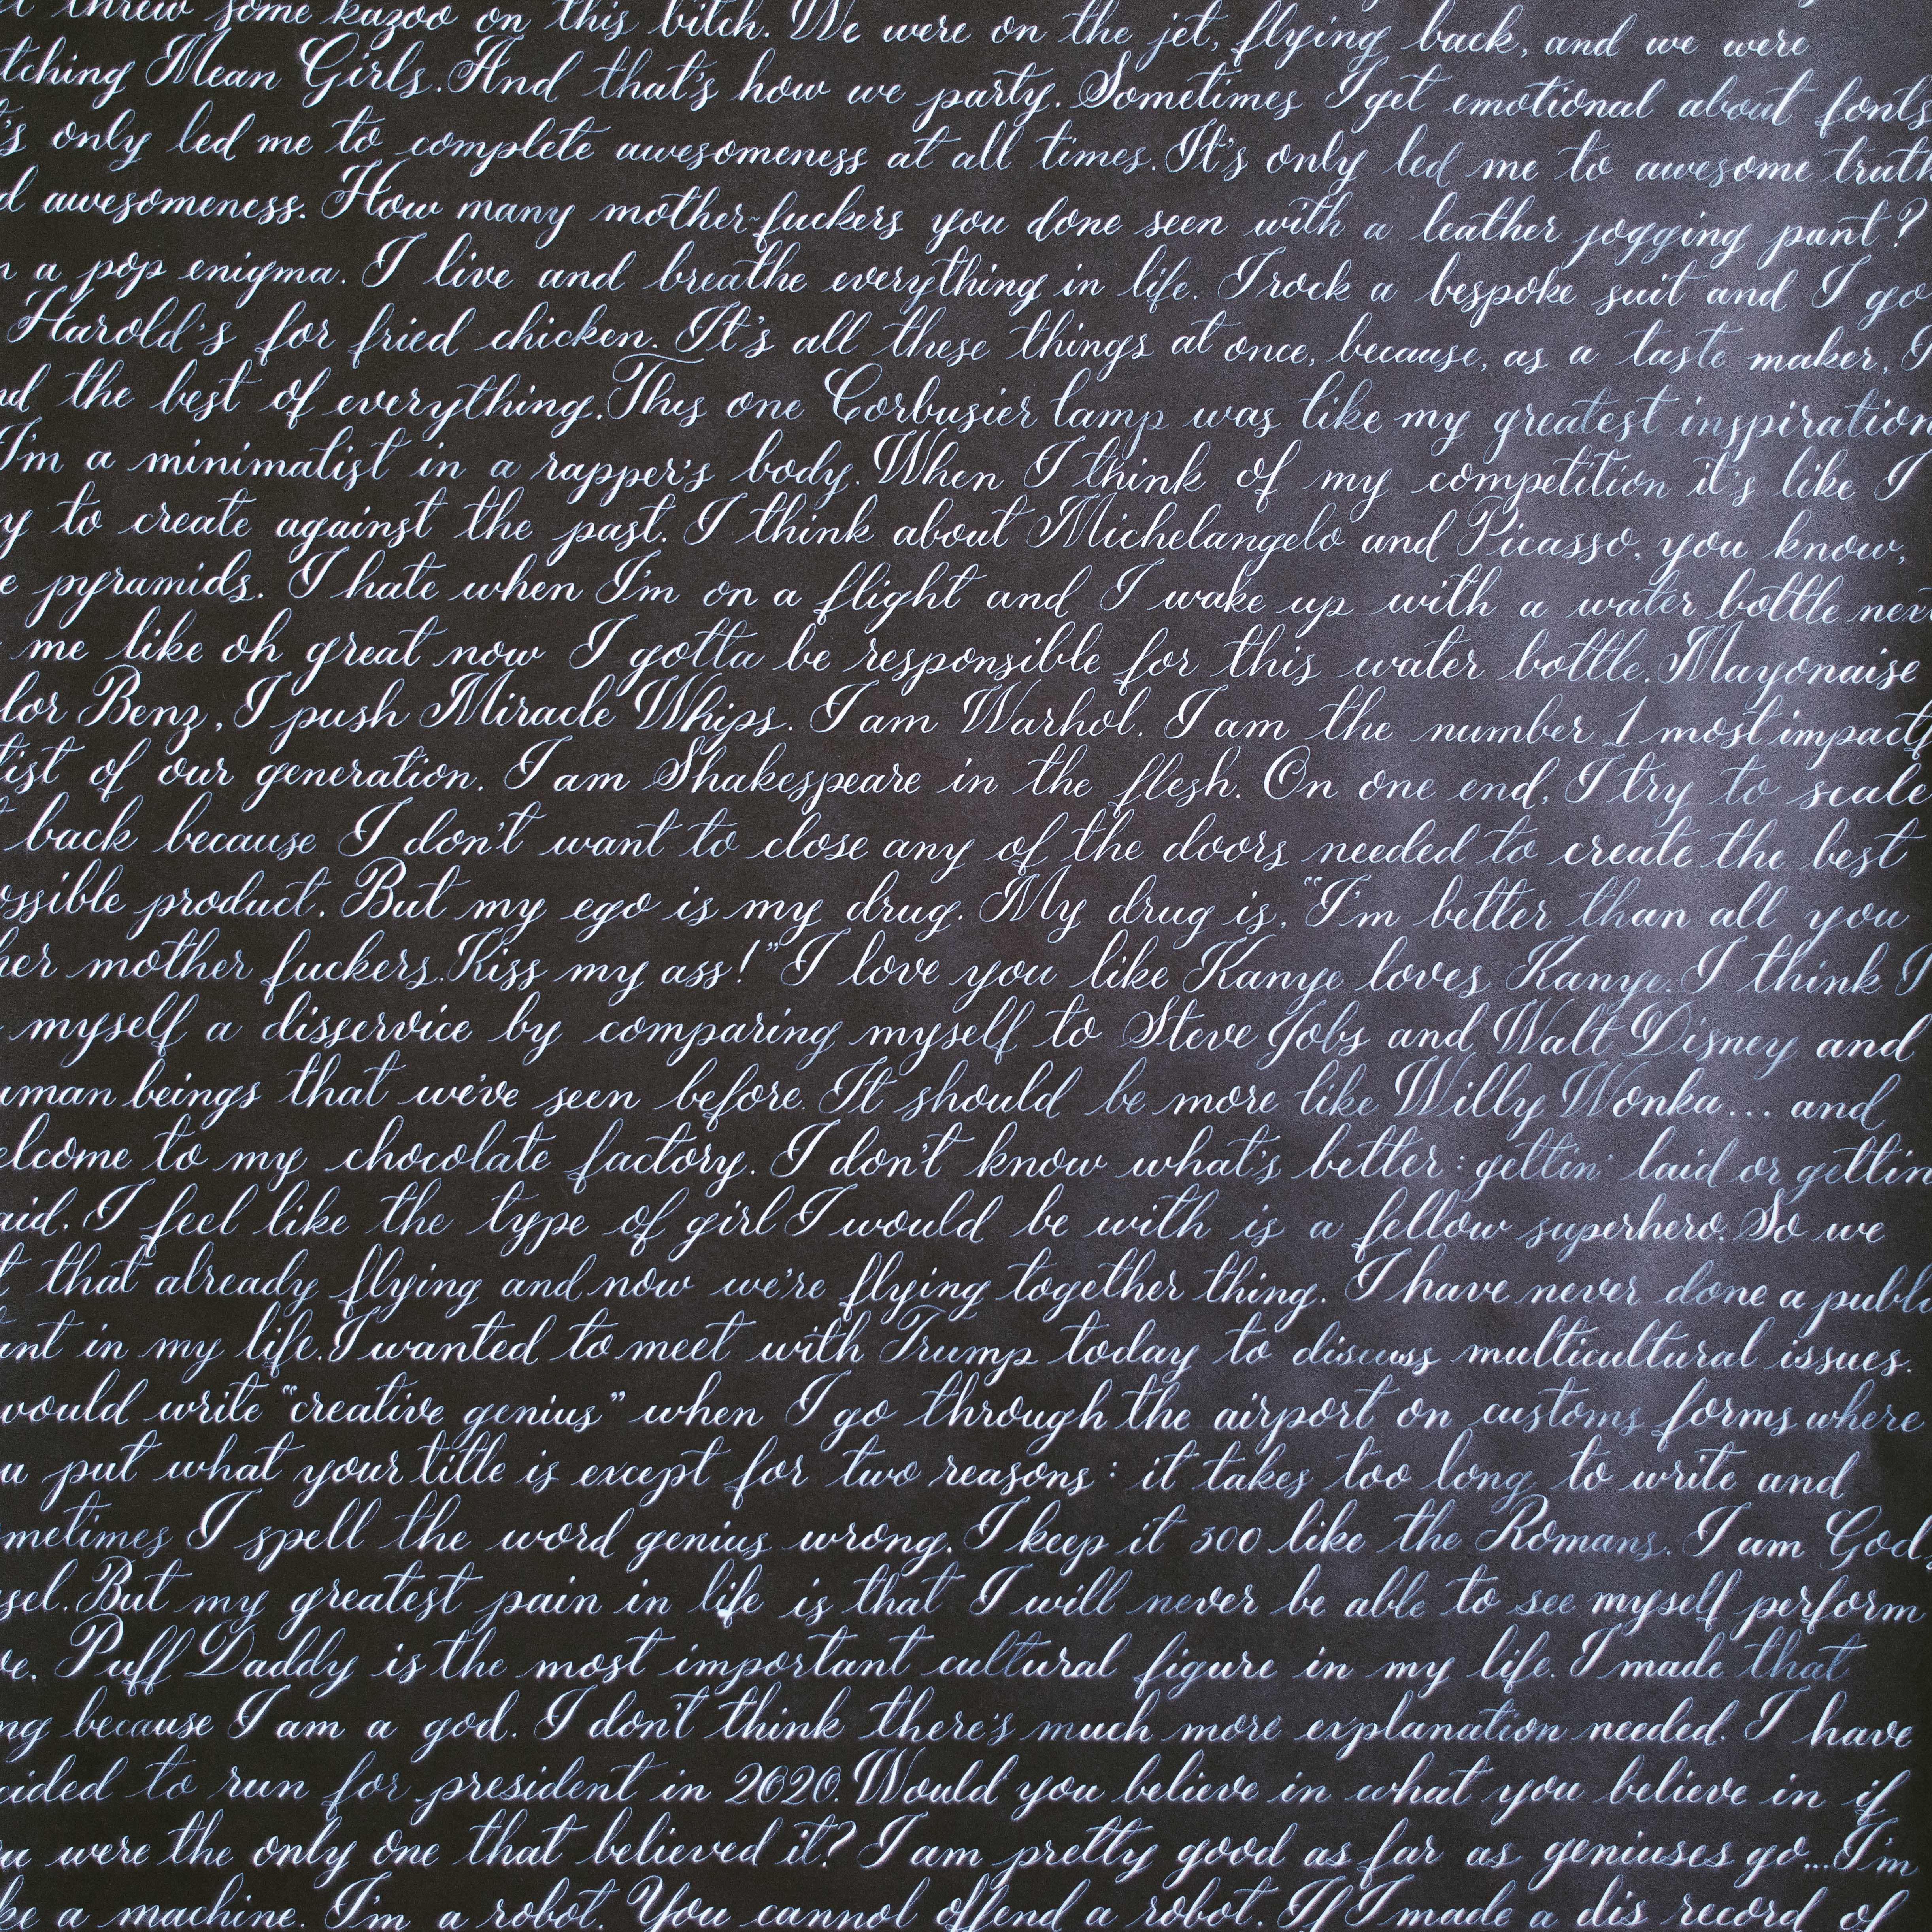 threw some kazoo on this bitch. We were on the jet, flying back, and we were
tching Mean Girls. And that's how we party. Sometimes I get emotional about fonts
's only led me to complete awesomeness at all times. It's only led me to awesome truth
d awesomeness. How many mother-fuckers you done seen with a leather jogging pant?
a pop enigma. I live and breathe everything in life. I rock a bespoke suit and I go
Harold's for fried chicken. It's all these things at once, because, as a taste maker, I
nd the best of everything. This one Corbusier lamp was like my greatest inspiration
I'm a minimalist in a rapper's body. When I think of my competition it's like I
y to create against the past. I think about Michelangelo and Picasso, you know,
e pyramids. I hate when I'm on a flight and I wake up with a water bottle nex
me like oh great now I gotta be responsible for this water bottle. Mayonaise
lor Benz, I push Miracle Whips. I am Warhol. I am the number 1 most impactf
tist of our generation. I am Shakespeare in the flesh. On one end, I try to scale
t back because I don't want to close any of the doors needed to create the best
ossible product. But my ego is my drug. My drug is, "I'm better than all you
her mother fuckers. Kiss my ass!" I love you like Kanye loves Kanye. I think I
myself a disservice by comparing myself to Steve Jobs and Walt Disney and
uman beings that we've seen before. It should be more like Willy Wonka... and
elcome to my chocolate factory. I don't know what's better: gettin' laid or gettin
aid. I feel like the type of girl I would be with is a fellow superhero. So we
t that already flying and now we're flying together thing. I have never done a public
unt in my life. I wanted to meet with Trump today to discuss multicultural issues.
would write "creative genius" when I go through the airport on customs forms where
u put what your title is except for two reasons: it takes too long to write and
ometimes I spell the word genius wrong. I keep it 300 like the Romans. I am God
sel. But my greatest pain in life is that I will never be able to see myself perform
ve. Puff Daddy is the most important cultural figure in my life. I made that
ng because I am a god. I don't think there's much more explanation needed. I have
cided to run for president in 2020. Would you believe in what you believe in if
u were the only one that believed it? I am pretty good as far as geniuses go... I'm
ke a machine. I'm a robot. You cannot offend a robot. If I made a dis record of